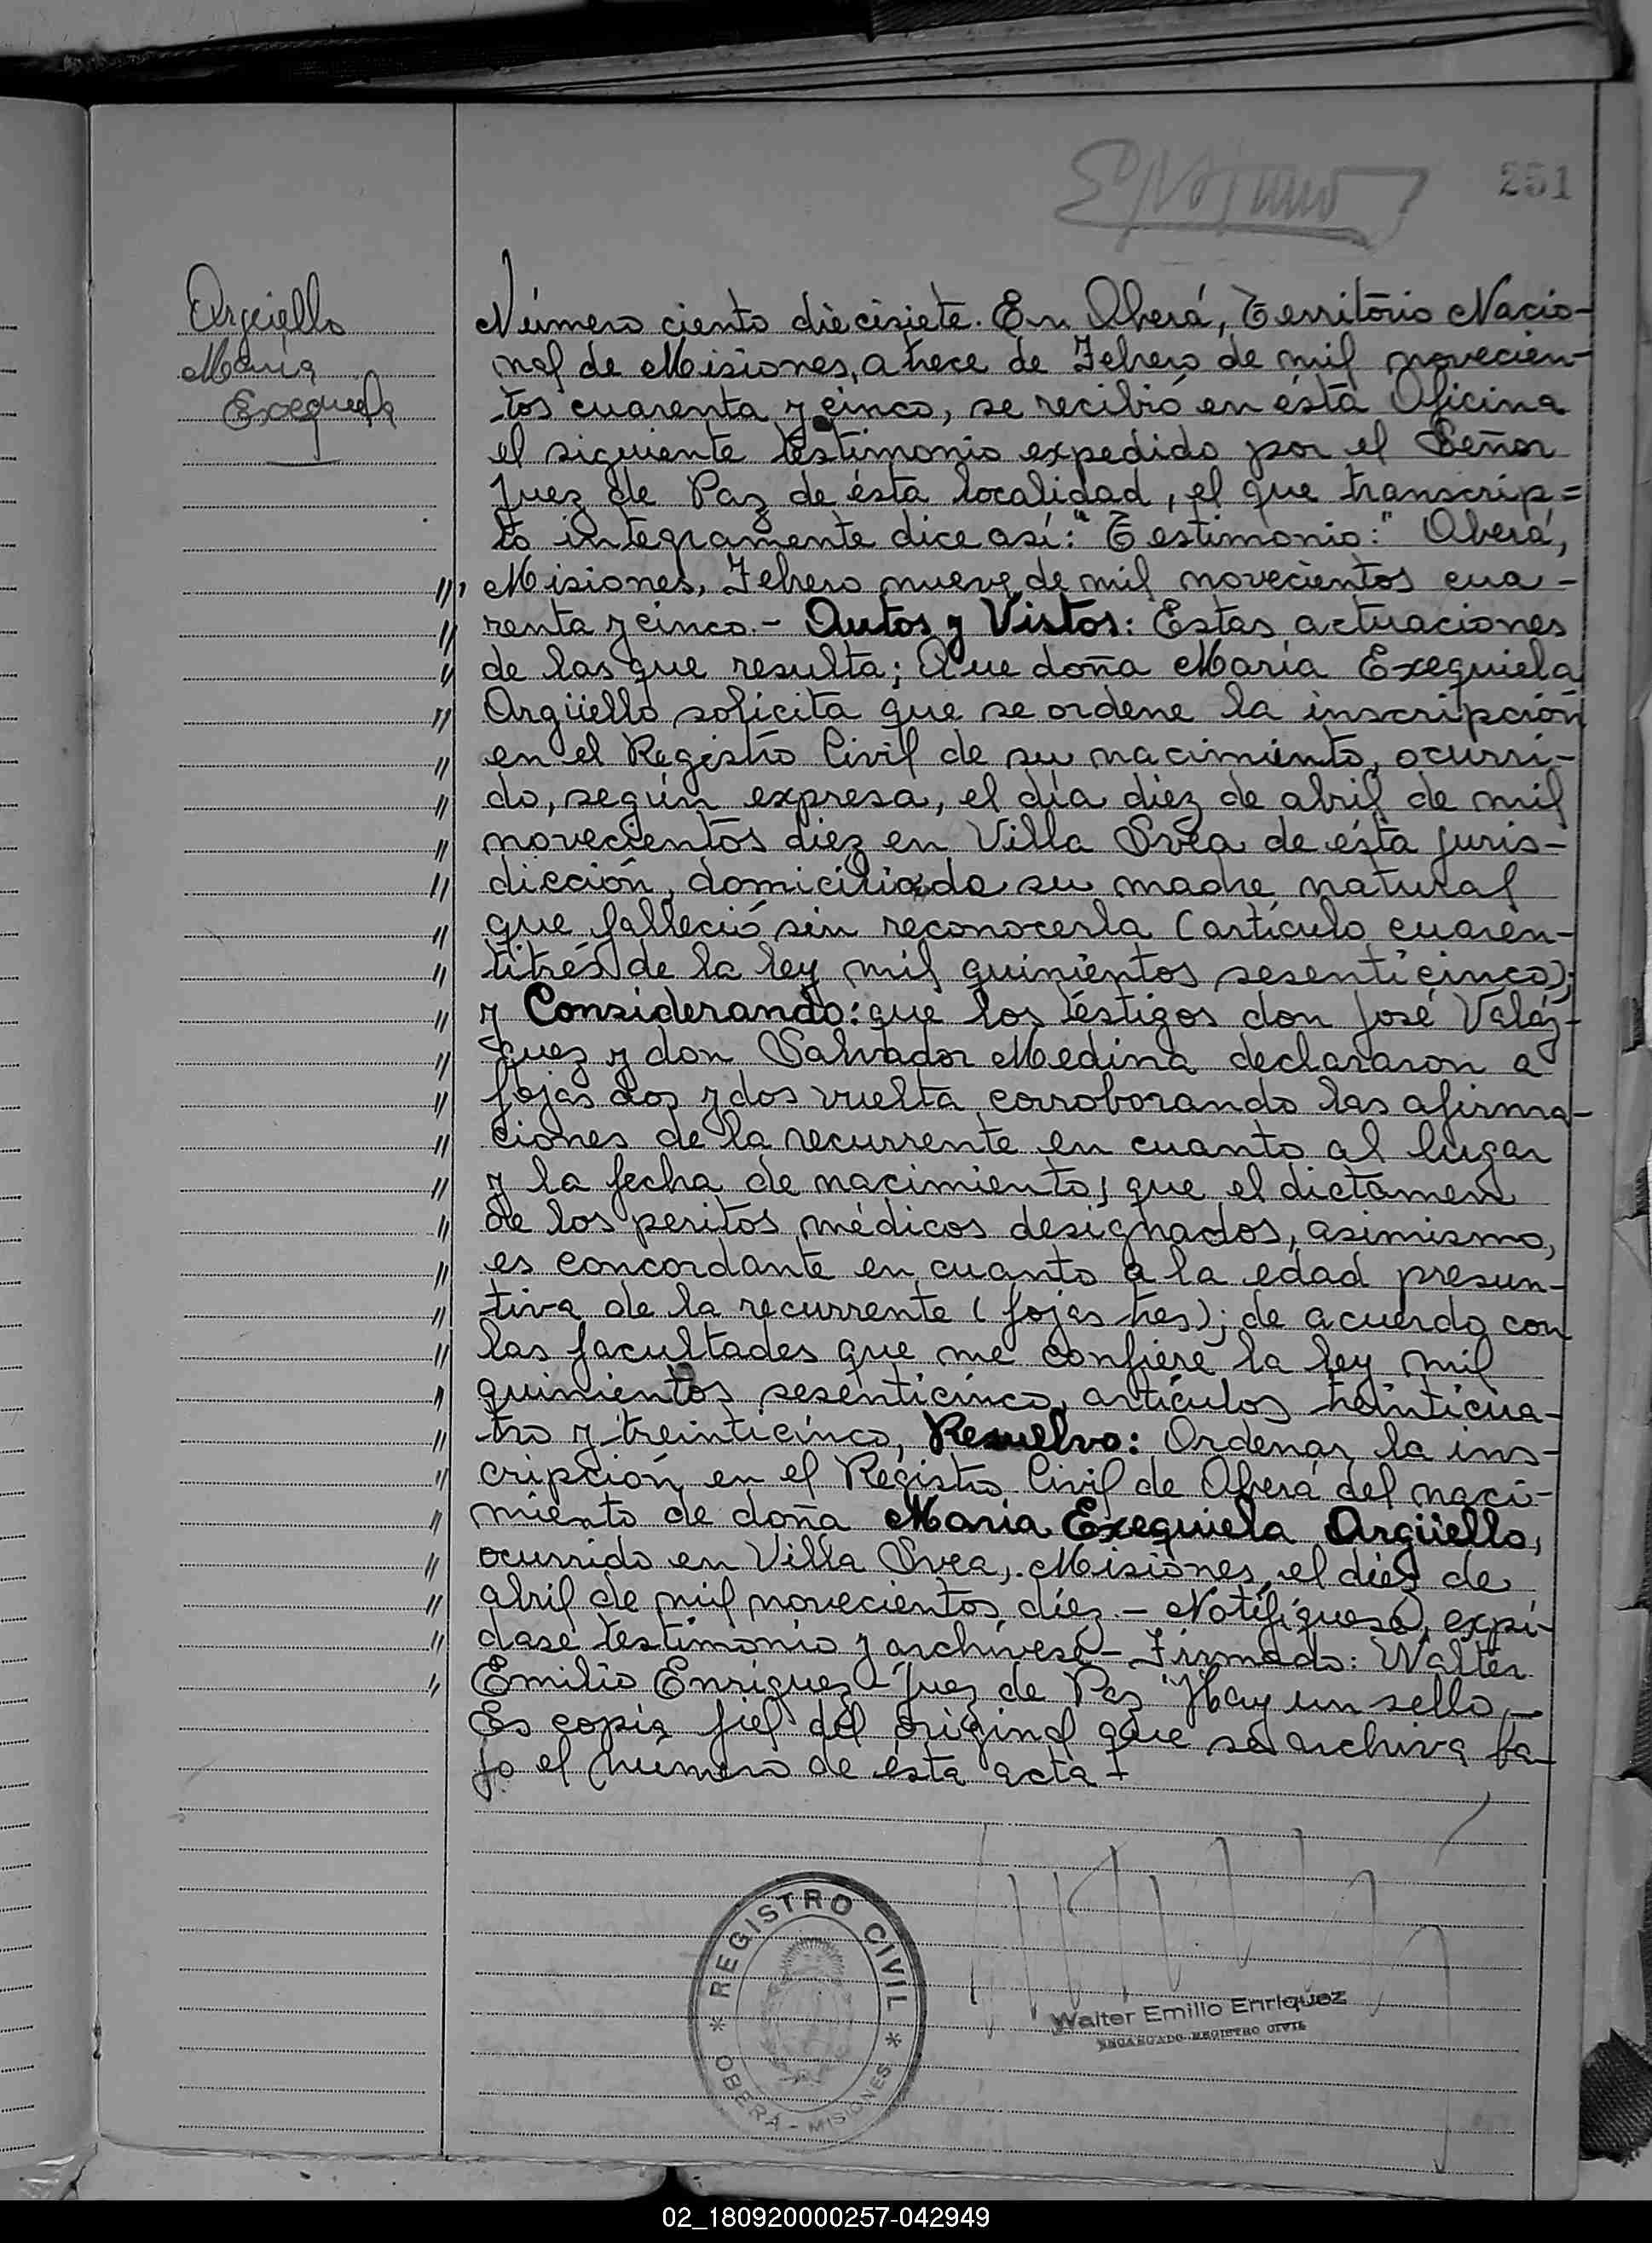 251
Argüello
María
Exequiela
Número ciento diecisiete. En Oberá, Territorio Nacio-
nal de Misiones, a trece de Febrero de mil novecien-
tos cuarenta y cinco, se recibió en ésta Oficina
el siguiente testimonio expedido por el Señor
Juez de Paz de ésta localidad, el que transcrip=
to integramente dice así: "Testimonio:" Oberá,
Misiones, Febrero nueve de mil novecientos cua-
renta y cinco.- Autos y Vistos: Estas actuaciones
de las que resulta; Que doña María Exequiela
Argüello solicita que se ordene la inscripción
en el Registro Civil de su nacimiento, ocurri-
do, según expresa, el día diez de abril de mil
novecientos diez en Villa Svea de ésta juris-
dicción, domicilio de su madre natural
que falleció sin reconocerla (artículo cuaren-
titrés de la ley mil quinientos sesenticinco);
y Considerando: que los testigos don José Valáz-
quez y don Salvador Medina declararon a
fojas dos y dos vuelta corroborando las afirma-
ciones de la recurrente en cuanto al lugar
y la fecha de nacimiento; que el dictamen
de los peritos médicos designados, asimismo,
es concordante en cuanto a la edad presun-
tiva de la recurrente (fojas tres); de acuerdo con
las facultades que me confiere la ley mil
quinientos sesenticinco, artículos treinticua-
tro y treinticinco, Resuelvo: Ordenar la ins-
cripción en el Registro Civil de Oberá del naci-
miento de doña María Exequiela Argüello,
ocurrido en Villa Svea, Misiones, el diez de
abril de mil novecientos diez.- Notifíquese, expí-
dase testimonio y archívese- Firmado: Walter
Emilio Enriquez - Juez de Paz" Hay un sello.-
Es copia fiel del original que se archiva ba-
jo el número de ésta acta-
REGISTRO CIVIL
OBERÁ - MISIONES
Walter Emilio Enriquez
ENCARGADO REGISTRO CIVIL
02_180920000257-042949